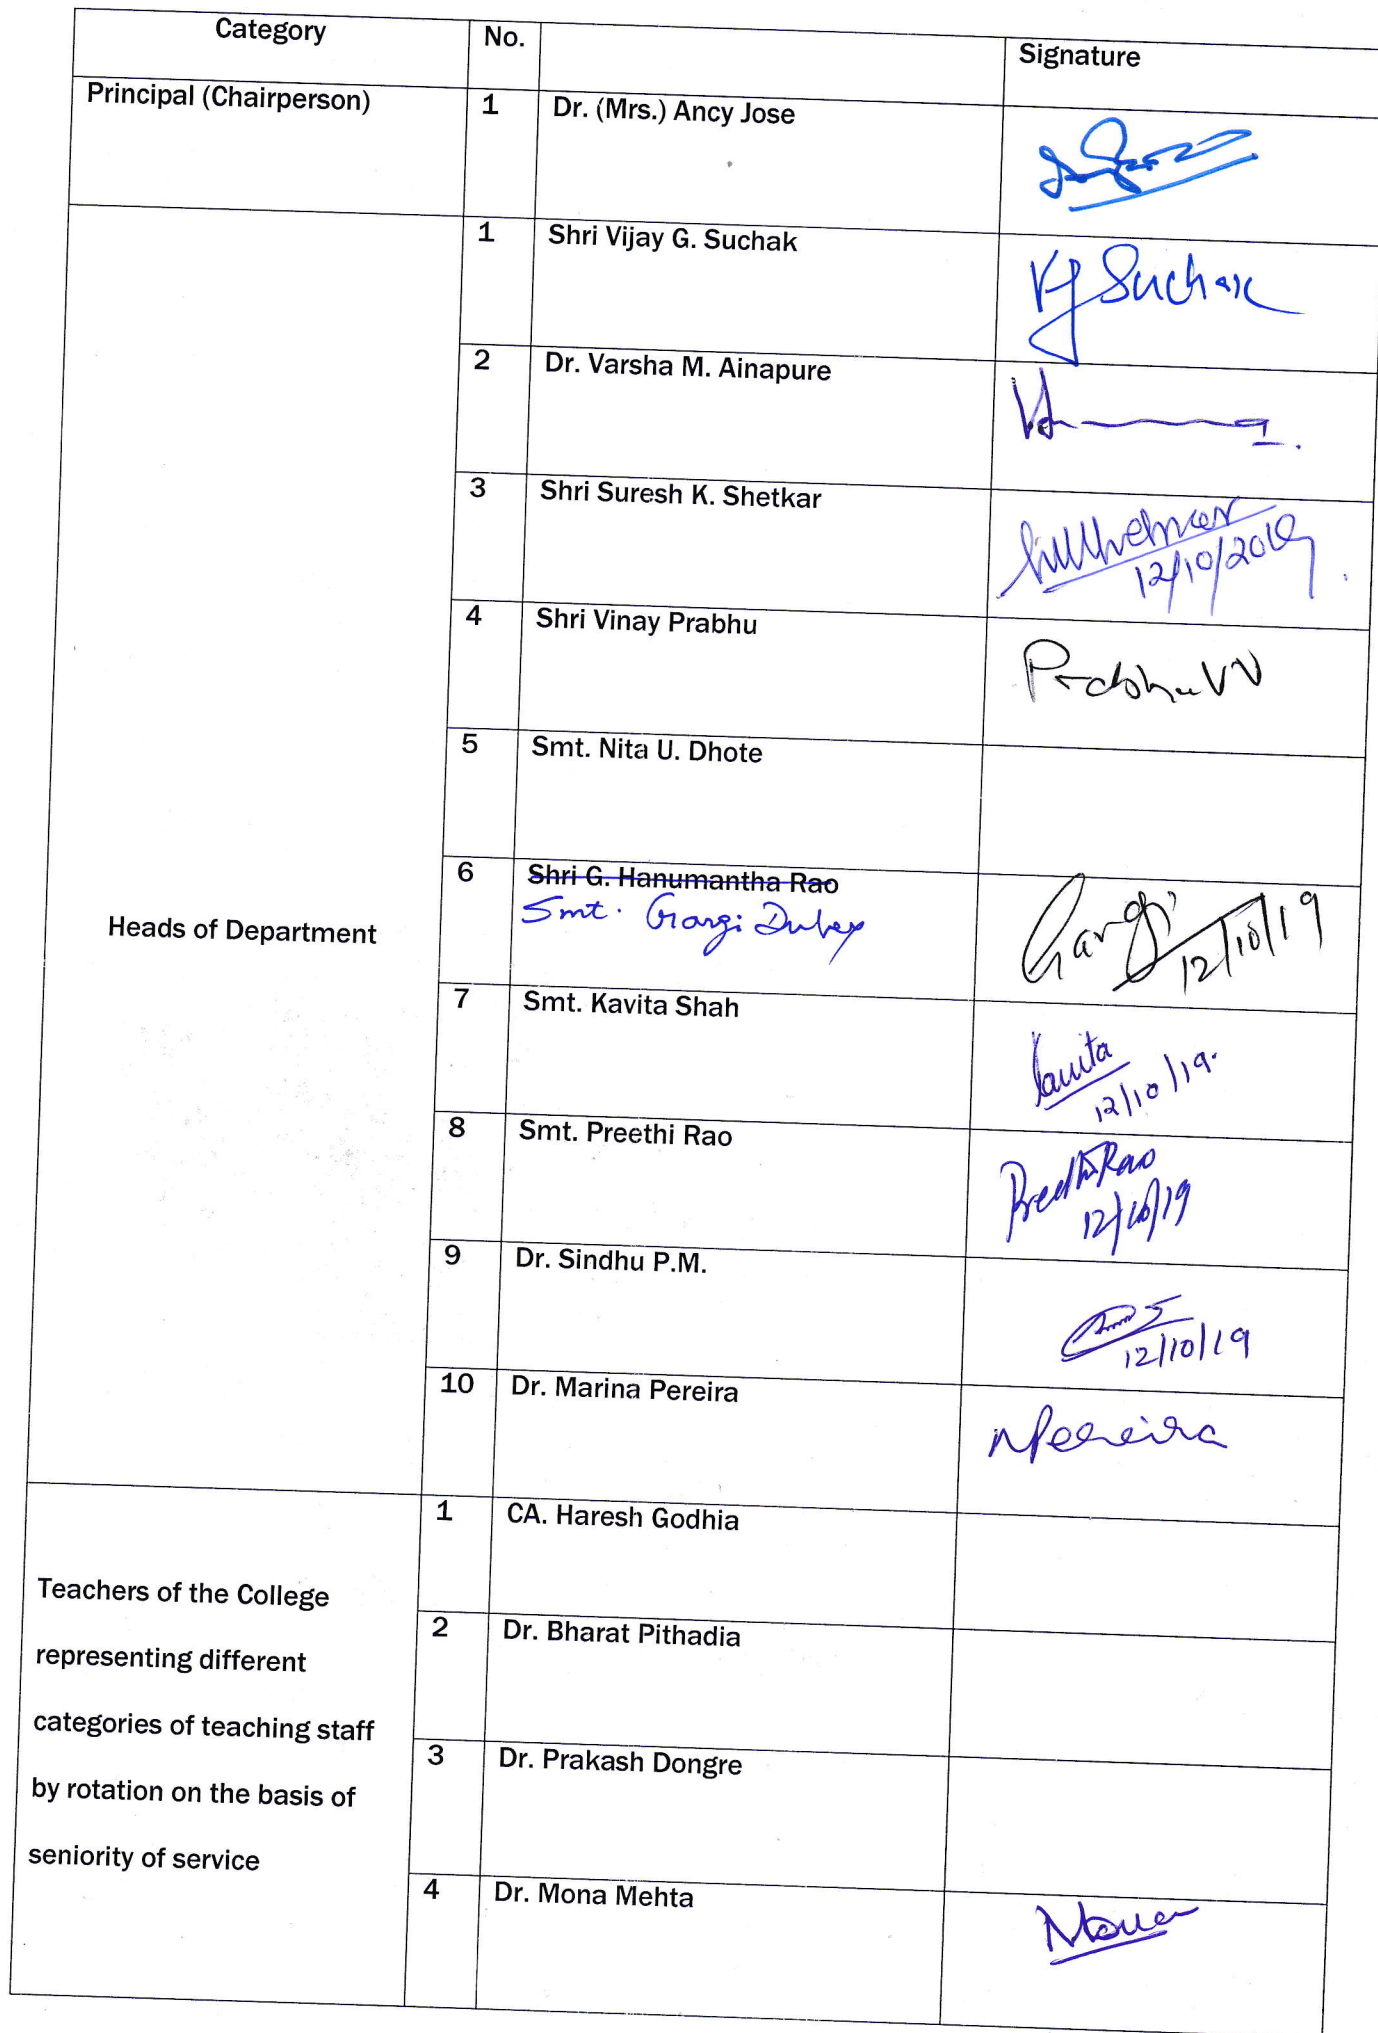 Category No. Signature
Principal (Chairperson) 1 Dr. (Mrs.) Ancy Jose
1 Shri Vijay G. Suchak VG Suchak
2 Dr. Varsha M. Ainapure
3 Shri Suresh K. Shetkar
12/10/2019
4 Shri Vinay Prabhu Prabhu VV
5 Smt. Nita U. Dhote
Heads of Department
6 Shri G. Hanumantha Rao
Smt. Gargi Dubey Gargi
12/10/19
7 Smt. Kavita Shah Kavita
12/10/19.
8 Smt. Preethi Rao Preethi Rao
12/10/19
9 Dr. Sindhu P.M.
12/10/19
10 Dr. Marina Pereira MPereira
Teachers of the College
representing different
categories of teaching staff
by rotation on the basis of
seniority of service
1 CA. Haresh Godhia
2 Dr. Bharat Pithadia
3 Dr. Prakash Dongre
4 Dr. Mona Mehta Mona